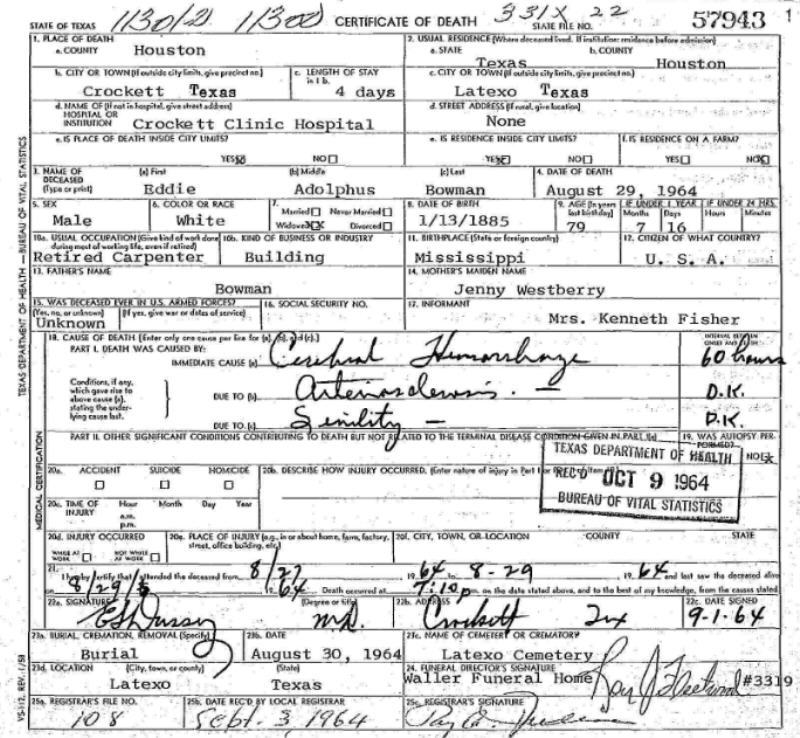 STATE OF TEXAS 1130/2 1130 CERTIFICATE OF DEATH 331X 22 STATE FILE NO. 57943 1
1. PLACE OF DEATH 2. USUAL RESIDENCE (Where deceased lived. If institution: residence before admission)
a. COUNTY Houston a. STATE Texas b. COUNTY Houston
b. CITY OR TOWN (If outside city limits, give precinct no.) Crockett Texas c. LENGTH OF STAY in 1 b. 4 days c. CITY OR TOWN (If outside city limits, give precinct no.) Latexo Texas
d. NAME OF (If not in hospital, give street address) HOSPITAL OR INSTITUTION Crockett Clinic Hospital d. STREET ADDRESS (If rural, give location) None
e. IS PLACE OF DEATH INSIDE CITY LIMITS? YES NO e. IS RESIDENCE INSIDE CITY LIMITS? YES NO f. IS RESIDENCE ON A FARM? YES NO
3. NAME OF DECEASED (Type or print) (a) First Eddie (b) Middle Adolphus (c) Last Bowman 4. DATE OF DEATH August 29, 1964
5. SEX Male 6. COLOR OR RACE White 7. Married Never Married Widowed Divorced 8. DATE OF BIRTH 1/13/1885 9. AGE (In years last birthday) 79 IF UNDER 1 YEAR Months 7 Days 16 IF UNDER 24 HRS. Hours Minutes
10a. USUAL OCCUPATION (Give kind of work done during most of working life, even if retired) Retired Carpenter 10b. KIND OF BUSINESS OR INDUSTRY Building 11. BIRTHPLACE (State or foreign country) Mississippi 12. CITIZEN OF WHAT COUNTRY? U. S. A.
13. FATHER'S NAME Bowman 14. MOTHER'S MAIDEN NAME Jenny Westberry
15. WAS DECEASED EVER IN U.S. ARMED FORCES? (Yes, no, or unknown) Unknown (If yes, give war or dates of service) 16. SOCIAL SECURITY NO. 17. INFORMANT Mrs. Kenneth Fisher
18. CAUSE OF DEATH (Enter only one cause per line for (a), (b), and (c).) INTERVAL BETWEEN ONSET AND DEATH
PART I. DEATH WAS CAUSED BY:
IMMEDIATE CAUSE (a) Cerebral Hemorrhage 60 hours
Conditions, if any, which gave rise to above cause (a), stating the underlying cause last.
DUE TO (b) Arteriosclerosis - D.K.
DUE TO (c) Senility - D.K.
PART II. OTHER SIGNIFICANT CONDITIONS CONTRIBUTING TO DEATH BUT NOT RELATED TO THE TERMINAL DISEASE CONDITION GIVEN IN PART I(a) 19. WAS AUTOPSY PERFORMED? NO
TEXAS DEPARTMENT OF HEALTH
REC'D OCT 9 1964
BUREAU OF VITAL STATISTICS
20a. ACCIDENT SUICIDE HOMICIDE 20b. DESCRIBE HOW INJURY OCCURRED. (Enter nature of injury in Part I or Part II of item 18.)
20c. TIME OF INJURY Hour a.m. p.m. Month Day Year
20d. INJURY OCCURRED WHILE AT WORK NOT WHILE AT WORK 20e. PLACE OF INJURY (e.g., in or about home, farm, factory, street, office building, etc.) 20f. CITY, TOWN, OR LOCATION COUNTY STATE
21. I hereby certify that I attended the deceased from 8/27 1964 to 8-29, 1964 and last saw the deceased alive
on 8/29/ 1964 Death occurred at 7:10 p m. on the date stated above, and to the best of my knowledge, from the causes stated
22a. SIGNATURE (Degree or title) M.D. 22b. ADDRESS Crockett Tex 22c. DATE SIGNED 9-1-64
23a. BURIAL, CREMATION, REMOVAL (Specify) Burial 23b. DATE August 30, 1964 23c. NAME OF CEMETERY OR CREMATORY Latexo Cemetery
23d. LOCATION (City, town, or county) Latexo (State) Texas 24. FUNERAL DIRECTOR'S SIGNATURE Waller Funeral Home #3319
25a. REGISTRAR'S FILE NO. 108 25b. DATE REC'D BY LOCAL REGISTRAR Sept. 3, 1964 25c. REGISTRAR'S SIGNATURE
TEXAS DEPARTMENT OF HEALTH — BUREAU OF VITAL STATISTICS
MEDICAL CERTIFICATION
VS-112, REV. 1/58